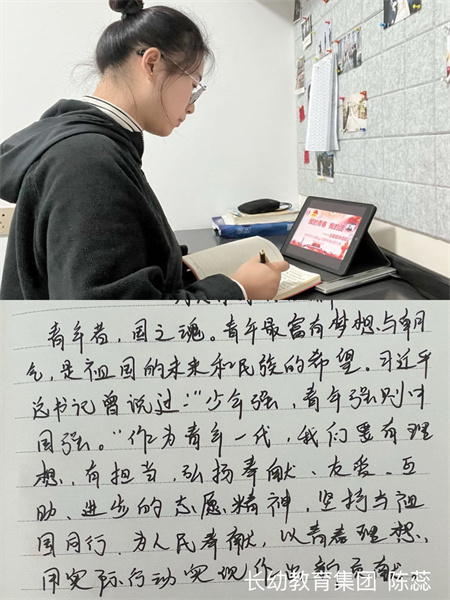 青年者，国之魂。青年最富有梦想与朝
气，是祖国的未来和民族的希望。习近平
总书记曾说过：“少年强，青年强则中
国强。”作为青年一代，我们要有理
想，有担当，弘扬奉献、友爱、互
助、进步的志愿精神，坚持与祖
国同行，为人民奉献，以青春理想，
用实际行动实现作出新贡献。
长幼教育集团 陈蕊